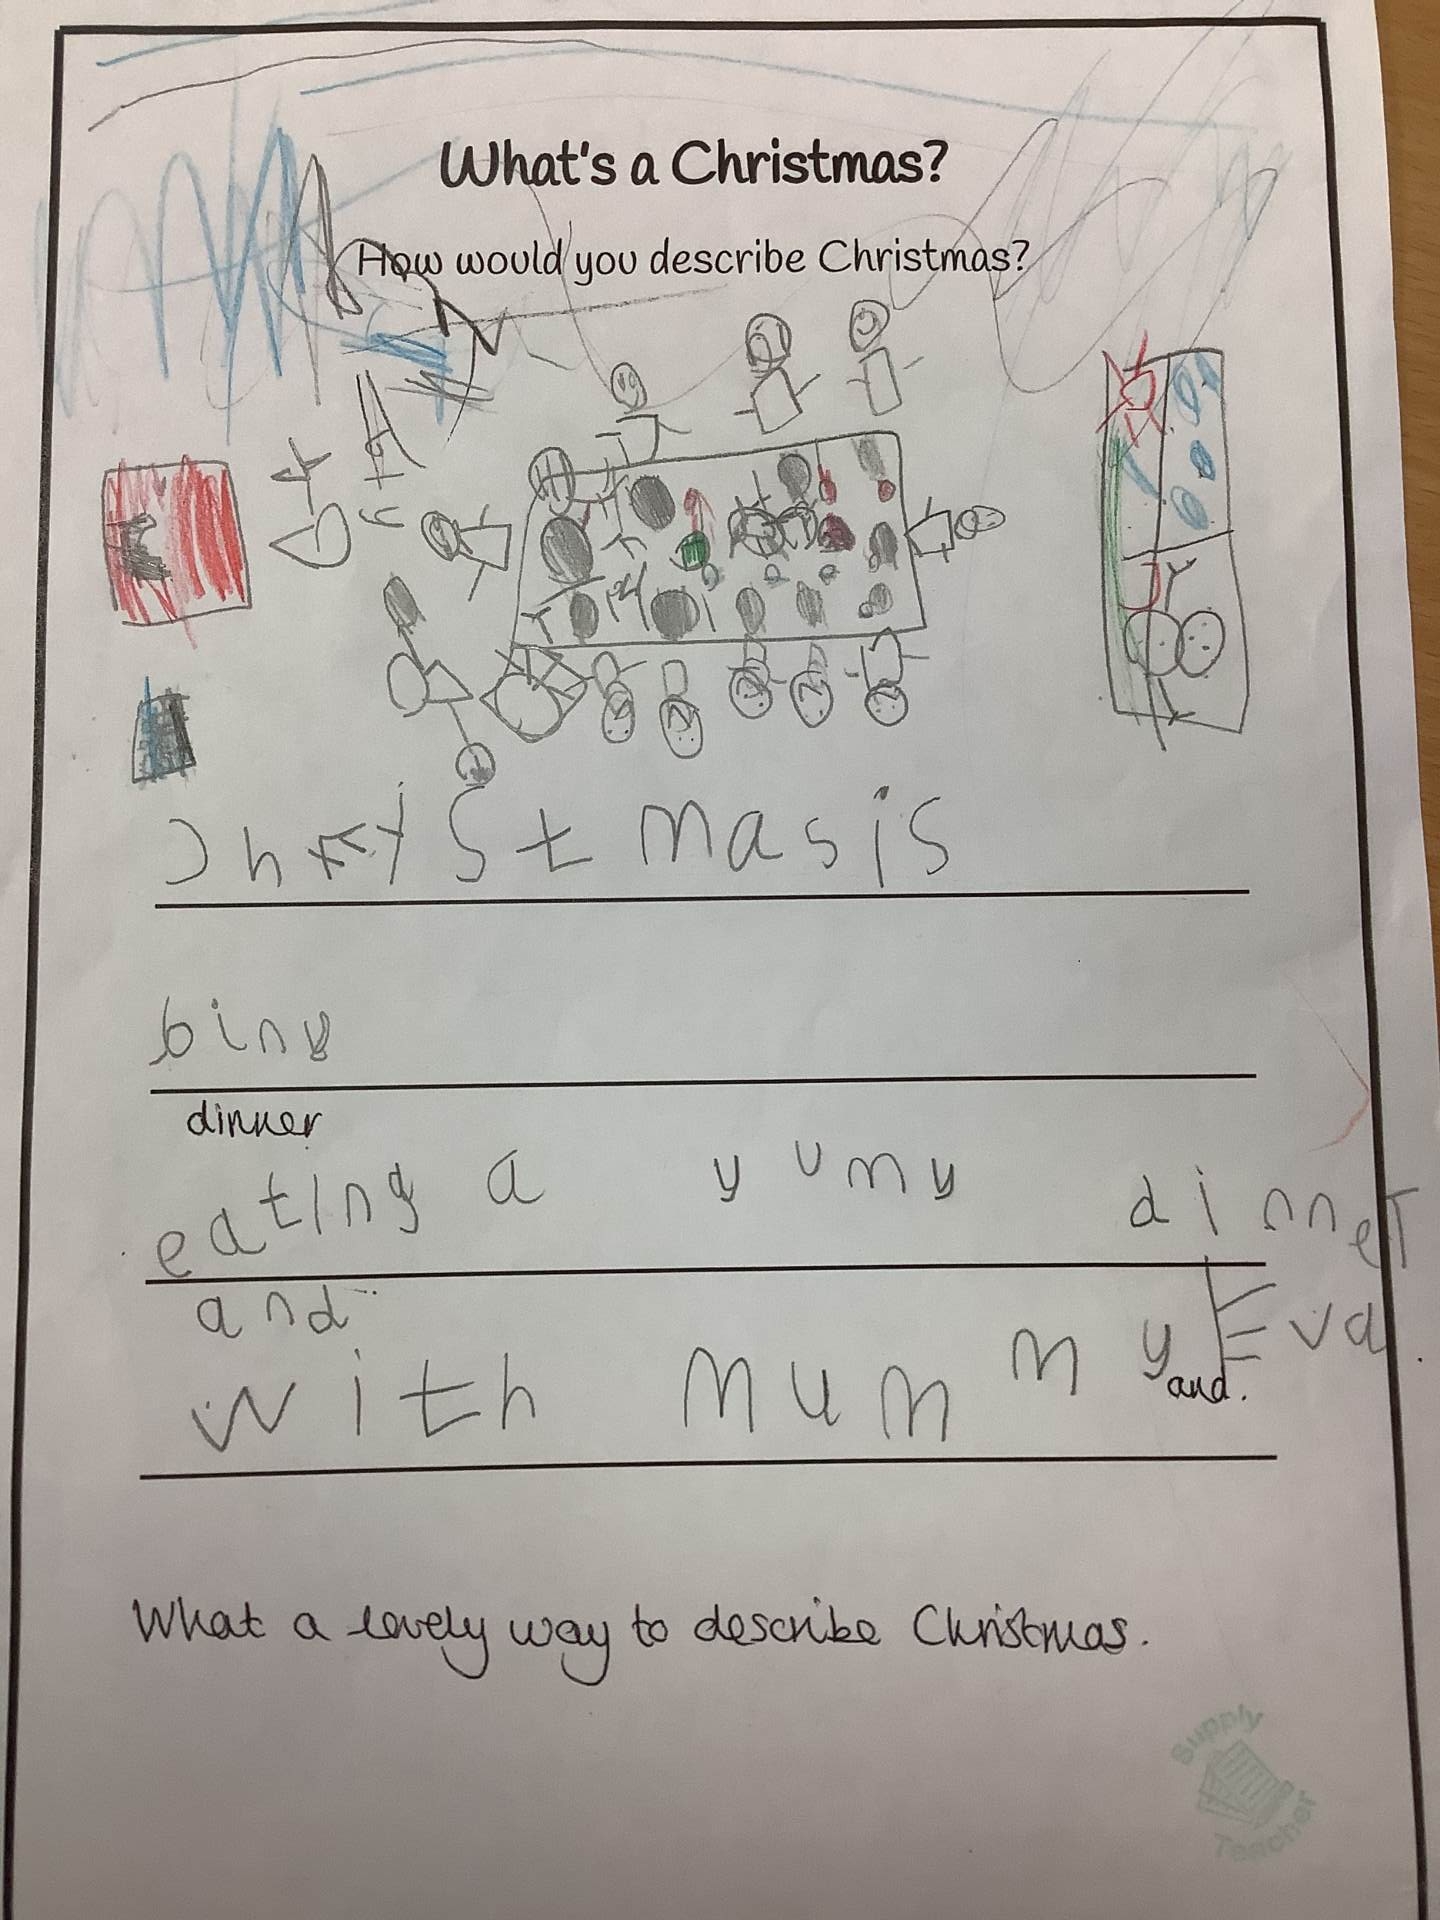 What's a Christmas?
How would you describe Christmas?
masis
dinner
eating a yumy dinner
and
with mummy Eva
and.
What a lovely way to describe Christmas.
Supply
Teacher